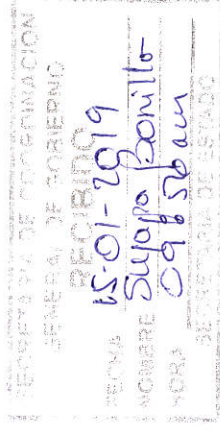 SECRETARIA DE COORDINACION
GENERAL DE GOBIERNO
RECIBIDO
FECHA 15-01-2019
NOMBRE Suyapa Bonilla
HORA 09:56 am
SECRETARIA DE ESTADO